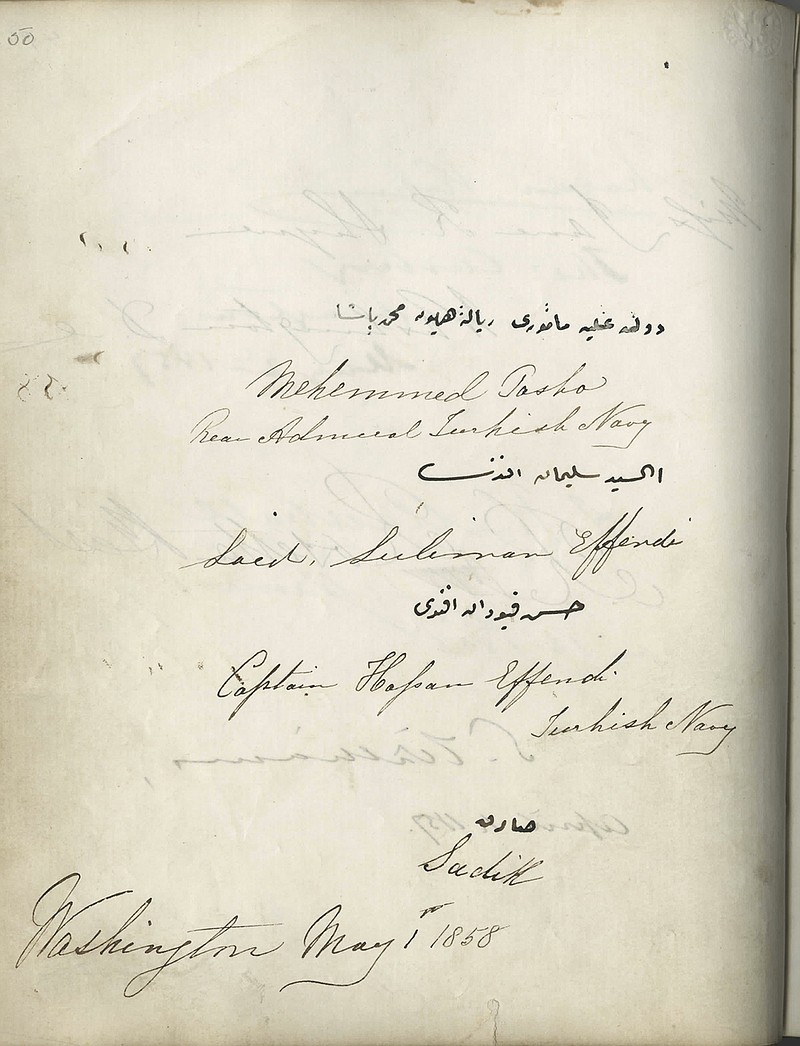 50
دولت علیه مأموری ریالهٔ همایون محمد پاشا
Mehemmed Pasha
Rear Admiral Turkish Navy
السید سلیمان افندی
Saed. Suliman Effendi
حسن قپودان افندی
Captain Hassan Effendi
Turkish Navy
صادق
Sadik
Washington May 1st 1858